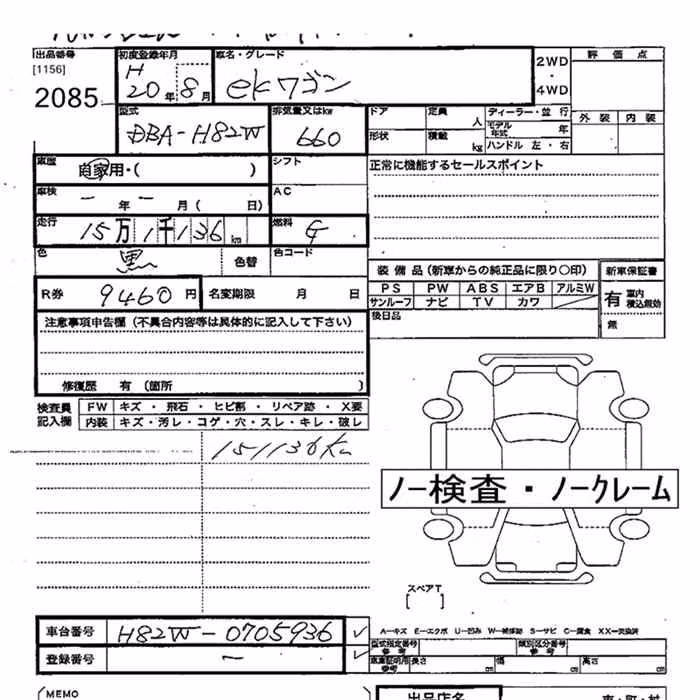 出品番号 初度登録年月 車名・グレード 2WD 評価点
[1156] H
2085 20年 8月 ekワゴン ・ 4WD
型式 排気量又はkw ドア 定員 人 ディーラー・並行 外装 内装
DBA-H82W 660 形状 積載 kg モデル年式 年
ハンドル 左・右
車歴 自家用・( ) シフト 正常に機能するセールスポイント
車検 - 年 - 月( 日) AC
走行 15万1千136km 燃料 G
色 黒 色替 色コード
装備品(新車からの純正品に限り○印) 新車保証書
R券 9460円 名変期限 月 日 PS PW ABS エアB アルミW 有 車内積込有効
サンルーフ ナビ TV カワ
注意事項申告欄(不具合内容等は具体的に記入して下さい) 後日品 無
修復歴 有(箇所 )
検査員記入欄 FW キズ・飛石・ヒビ割・リペア跡・X要
内装 キズ・汚レ・コゲ・穴・スレ・キレ・破レ
151136km
ノー検査・ノークレーム
スペアT
[ ]
車台番号 H82W-0705936 ✓ A-キズ E-エクボ U-凹み W-補修跡 S-サビ C-腐食 XX-交換済
型式指定番号 参考 類別区分番号 参考
登録番号 - ✓ 車庫証明用 参考 長さ cm 幅 cm 高さ cm
(MEMO 出品店名 市・町・村